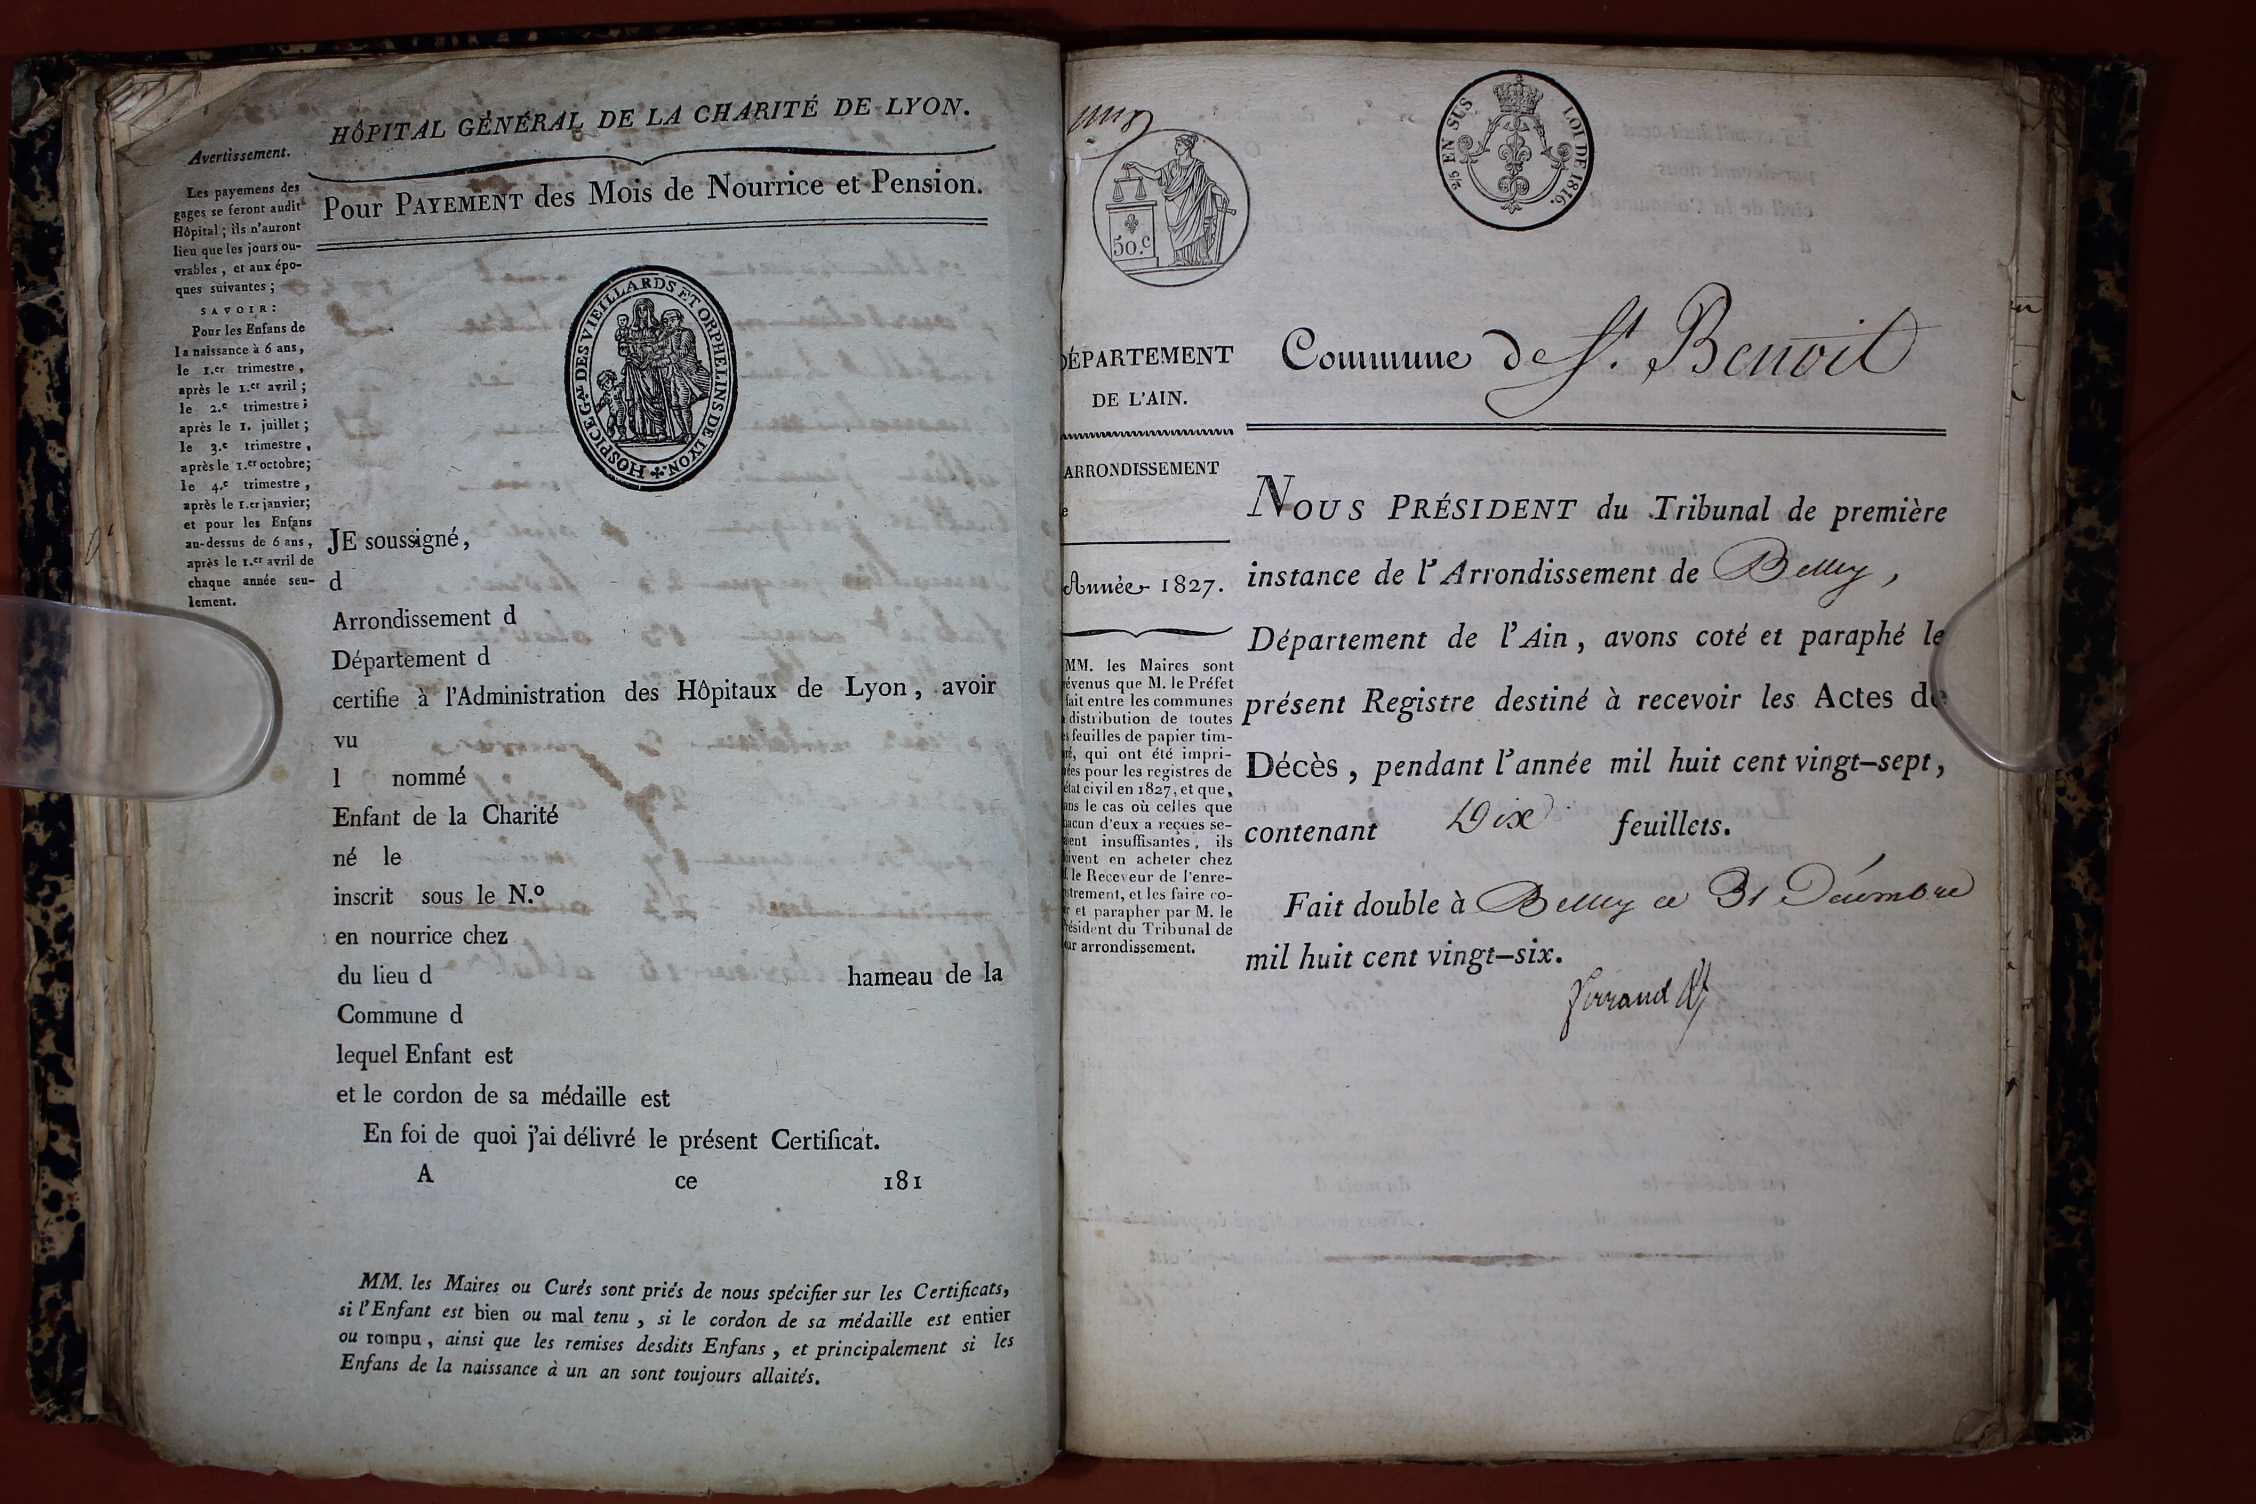 HÔPITAL GÉNÉRAL DE LA CHARITÉ DE LYON.
Avertissement.
Les payemens des
gages se feront audit
Hôpital ; ils n'auront
lieu que les jours ou-
vrables , et aux épo-
ques suivantes ;
SAVOIR :
Pour les Enfans de
la naissance à 6 ans,
le 1.er trimestre,
après le 1.er avril ;
le 2.e trimestre ;
après le 1. juillet ;
le 3.e trimestre ,
après le 1.er octobre;
le 4.e trimestre ,
après le 1.er janvier;
et pour les Enfans
au-dessus de 6 ans ,
après le 1.er avril de
chaque année seu-
lement.
Pour PAYEMENT des Mois de Nourrice et Pension.
HOSPICE G.AL DES VIEILLARDS ET ORPHELINS DE LYON.
JE soussigné,
d
Arrondissement d
Département d
certifie à l'Administration des Hôpitaux de Lyon, avoir
vu
l nommé
Enfant de la Charité
né le
inscrit sous le N.º
en nourrice chez
du lieu d hameau de la
Commune d
lequel Enfant est
et le cordon de sa médaille est
En foi de quoi j'ai délivré le présent Certificat.
A ce 181
MM. les Maires ou Curés sont priés de nous spécifier sur les Certificats,
si l'Enfant est bien ou mal tenu , si le cordon de sa médaille est entier
ou rompu , ainsi que les remises desdits Enfans , et principalement si les
Enfans de la naissance à un an sont toujours allaités.
50.c
2/5 EN SUS LOI DE 1816.
DÉPARTEMENT
DE L'AIN.
ARRONDISSEMENT
e
Année 1827.
MM. les Maires sont
révenus que M. le Préfet
fait entre les communes
distribution de toutes
es feuilles de papier tim-
ré, qui ont été impri-
ées pour les registres de
état civil en 1827, et que,
ans le cas où celles que
hacun d'eux a reçues se-
aient insuffisantes, ils
oivent en acheter chez
M. le Receveur de l'enre-
istrement, et les faire co-
er et parapher par M. le
Président du Tribunal de
eur arrondissement.
Commune de St. Benoit
NOUS PRÉSIDENT du Tribunal de première
instance de l'Arrondissement de Belley ,
Département de l'Ain , avons coté et paraphé le
présent Registre destiné à recevoir les Actes de
Décès , pendant l'année mil huit cent vingt-sept,
contenant Dix feuillets.
Fait double à Belley ce 31 Décembre
mil huit cent vingt-six.